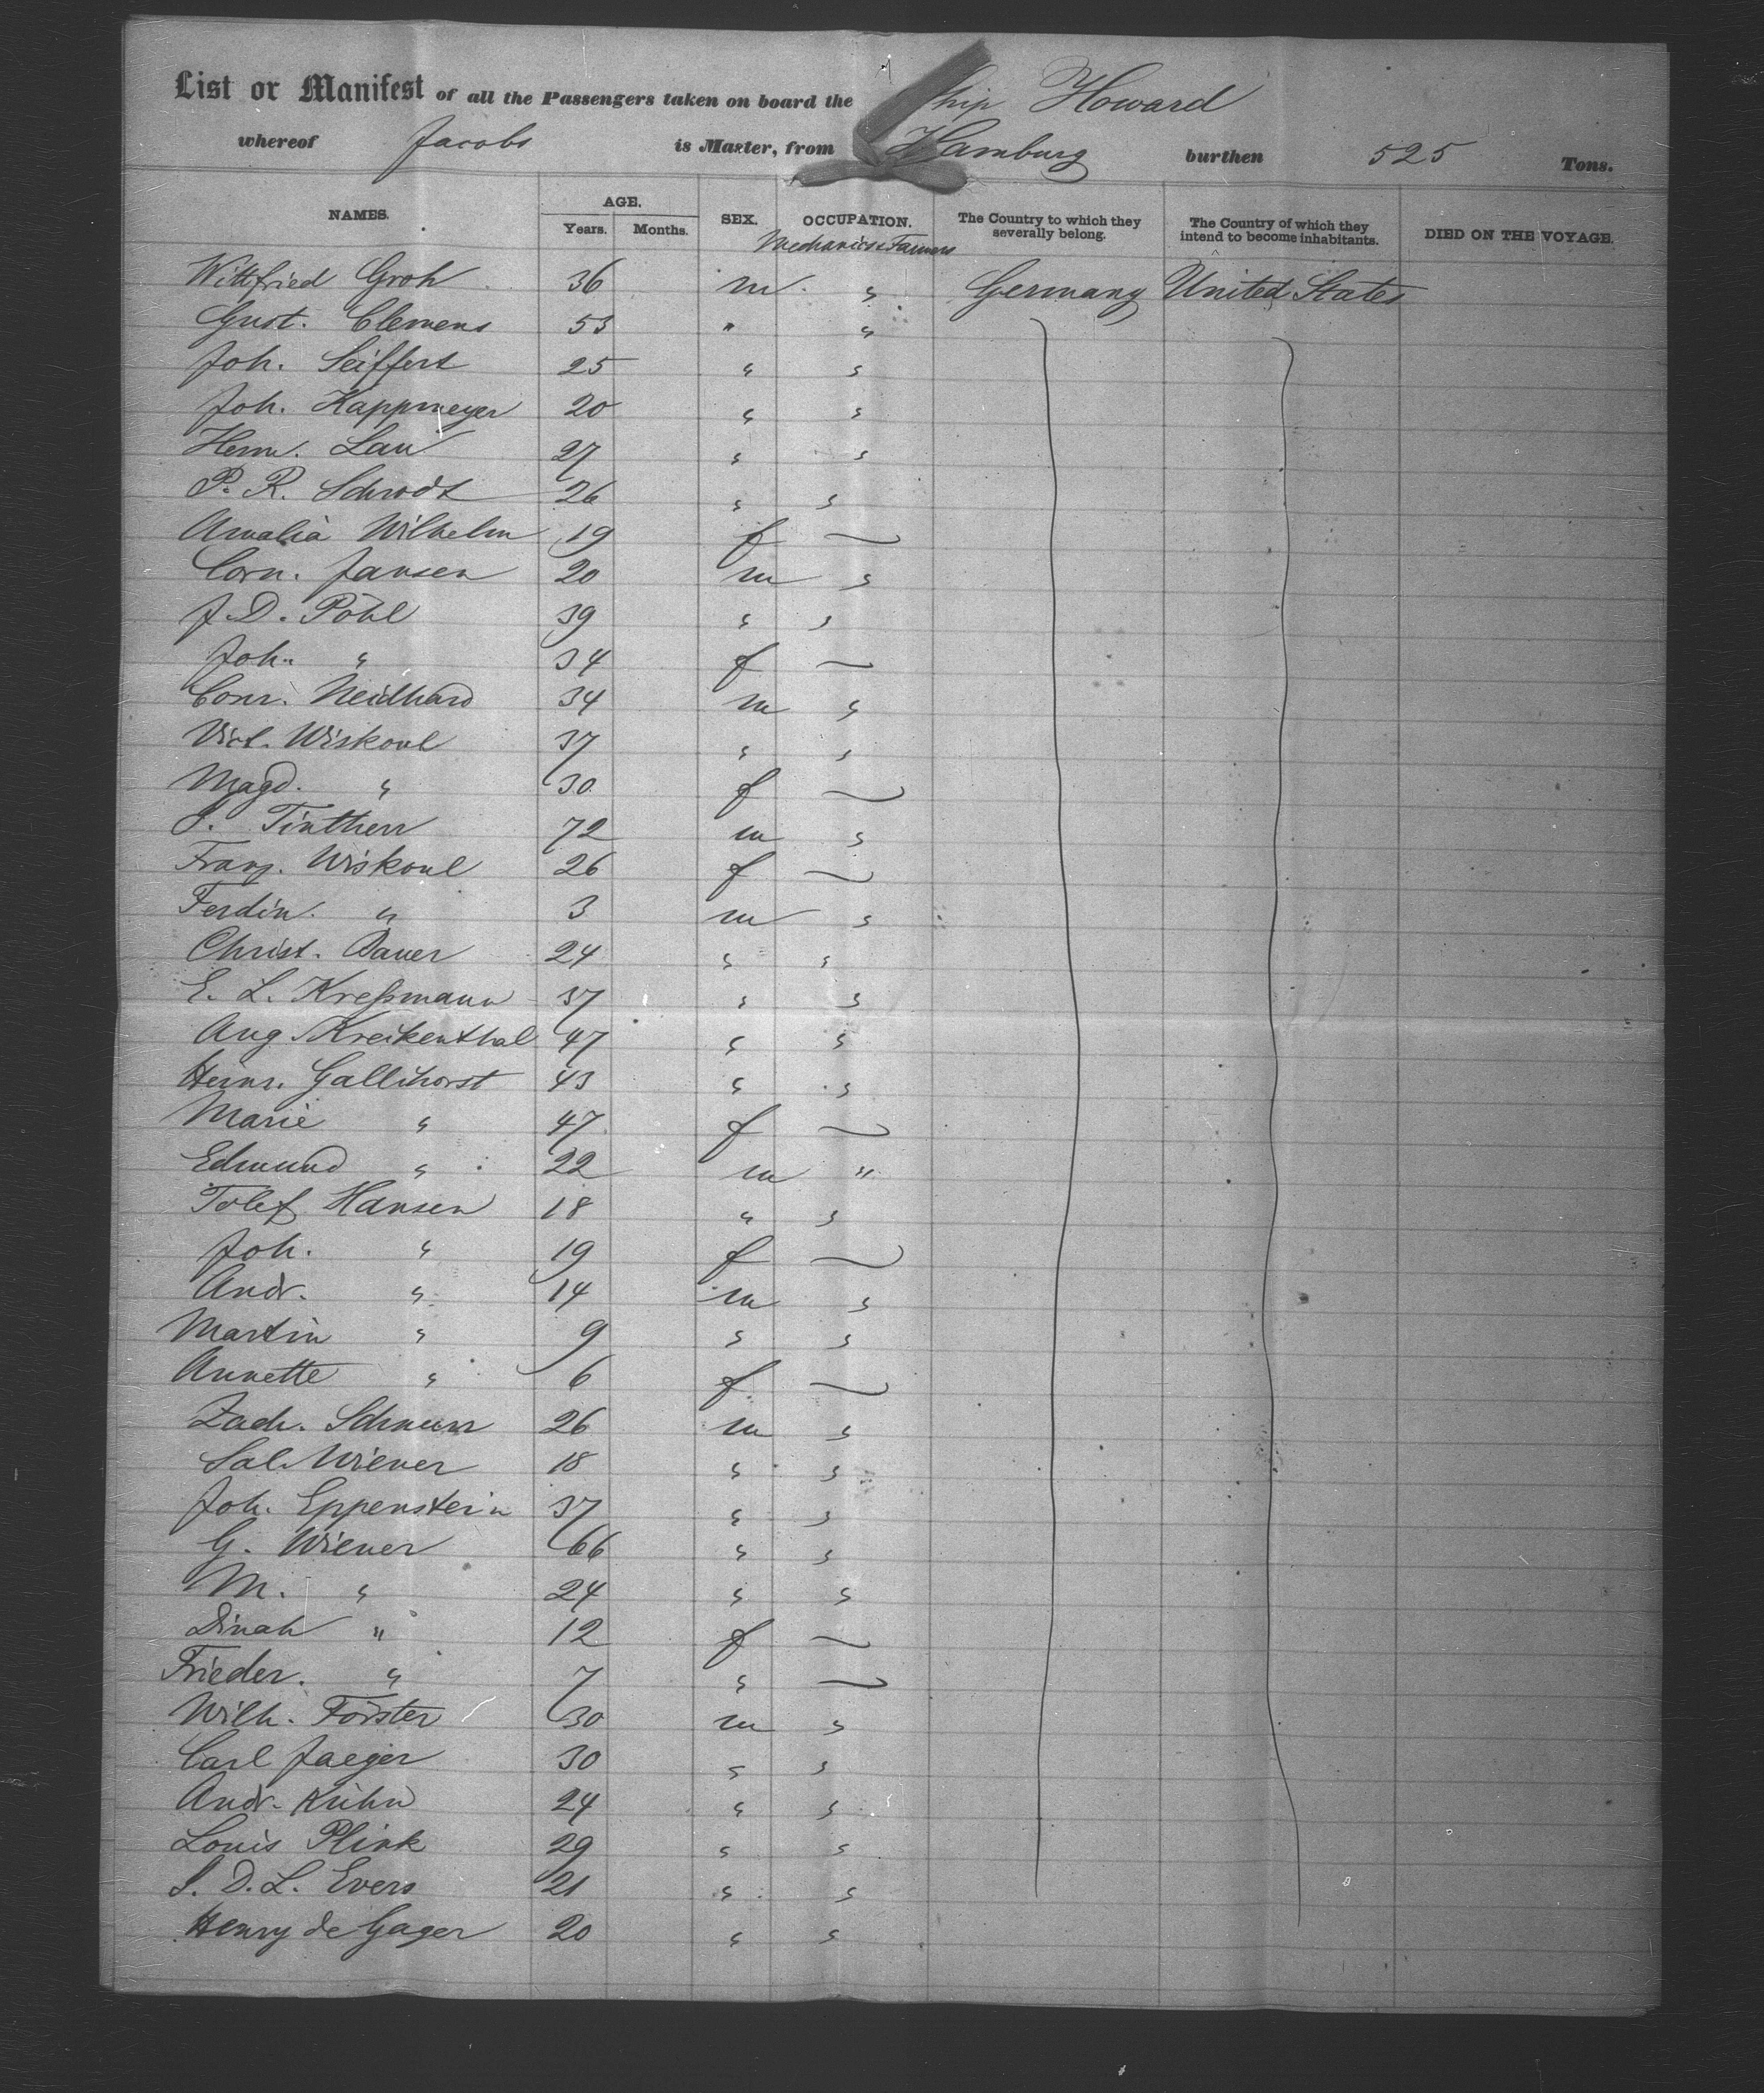 List or Manifest of all the Passengers taken on board the Ship Howard
whereof Jacobs is Master, from Hamburg burthen 525 Tons.
NAMES. AGE. Years. Months. SEX. OCCUPATION. The Country to which they severally belong. The Country of which they intend to become inhabitants. DIED ON THE VOYAGE.
Mechanics & Farmers
Wittfried Groh 36 m " Germany United States
Gust. Clemens 53 " "
Joh. Seiffert 25 " "
Joh. Kappmeyer 20 " "
Herm. Lau 27 " "
P. R. Schrodt 26 " "
Amalia Wilhelm 19 f —
Corn. Jansen 20 m "
J. D. Pöhl 39 " "
Joh. " 34 f —
Conr. Neidhard 34 m "
Vict. Wiskoul 37 " "
Magd. " 30 f —
J. Tintherr 72 m "
Franz. Wiskoul 26 f —
Ferdin. " 3 m "
Christ. Bauer 24 " "
E. L. Kreßmann 37 " "
Aug. Kreikenthal 47 " "
Heinr. Gallihorst 43 " "
Marie " 47 f —
Edmund " 22 m "
Tolef Hansen 18 " "
Joh. " 19 f —
Andr. " 14 m "
Martin " 9 " "
Annette " 6 f —
Zach. Schnurr 26 m "
Sal. Wiener 18 " "
Joh. Eppenstein 37 " "
G. Wiener 66 " "
M. " 24 " "
Dinah " 12 f —
Frieder. " 7 " —
Wilh. Förster 30 m "
Carl Jaeger 30 " "
Andr. Kühn 24 " "
Louis Plink 29 " "
J. D. L. Evers 21 " "
Henry de Gager 20 " "